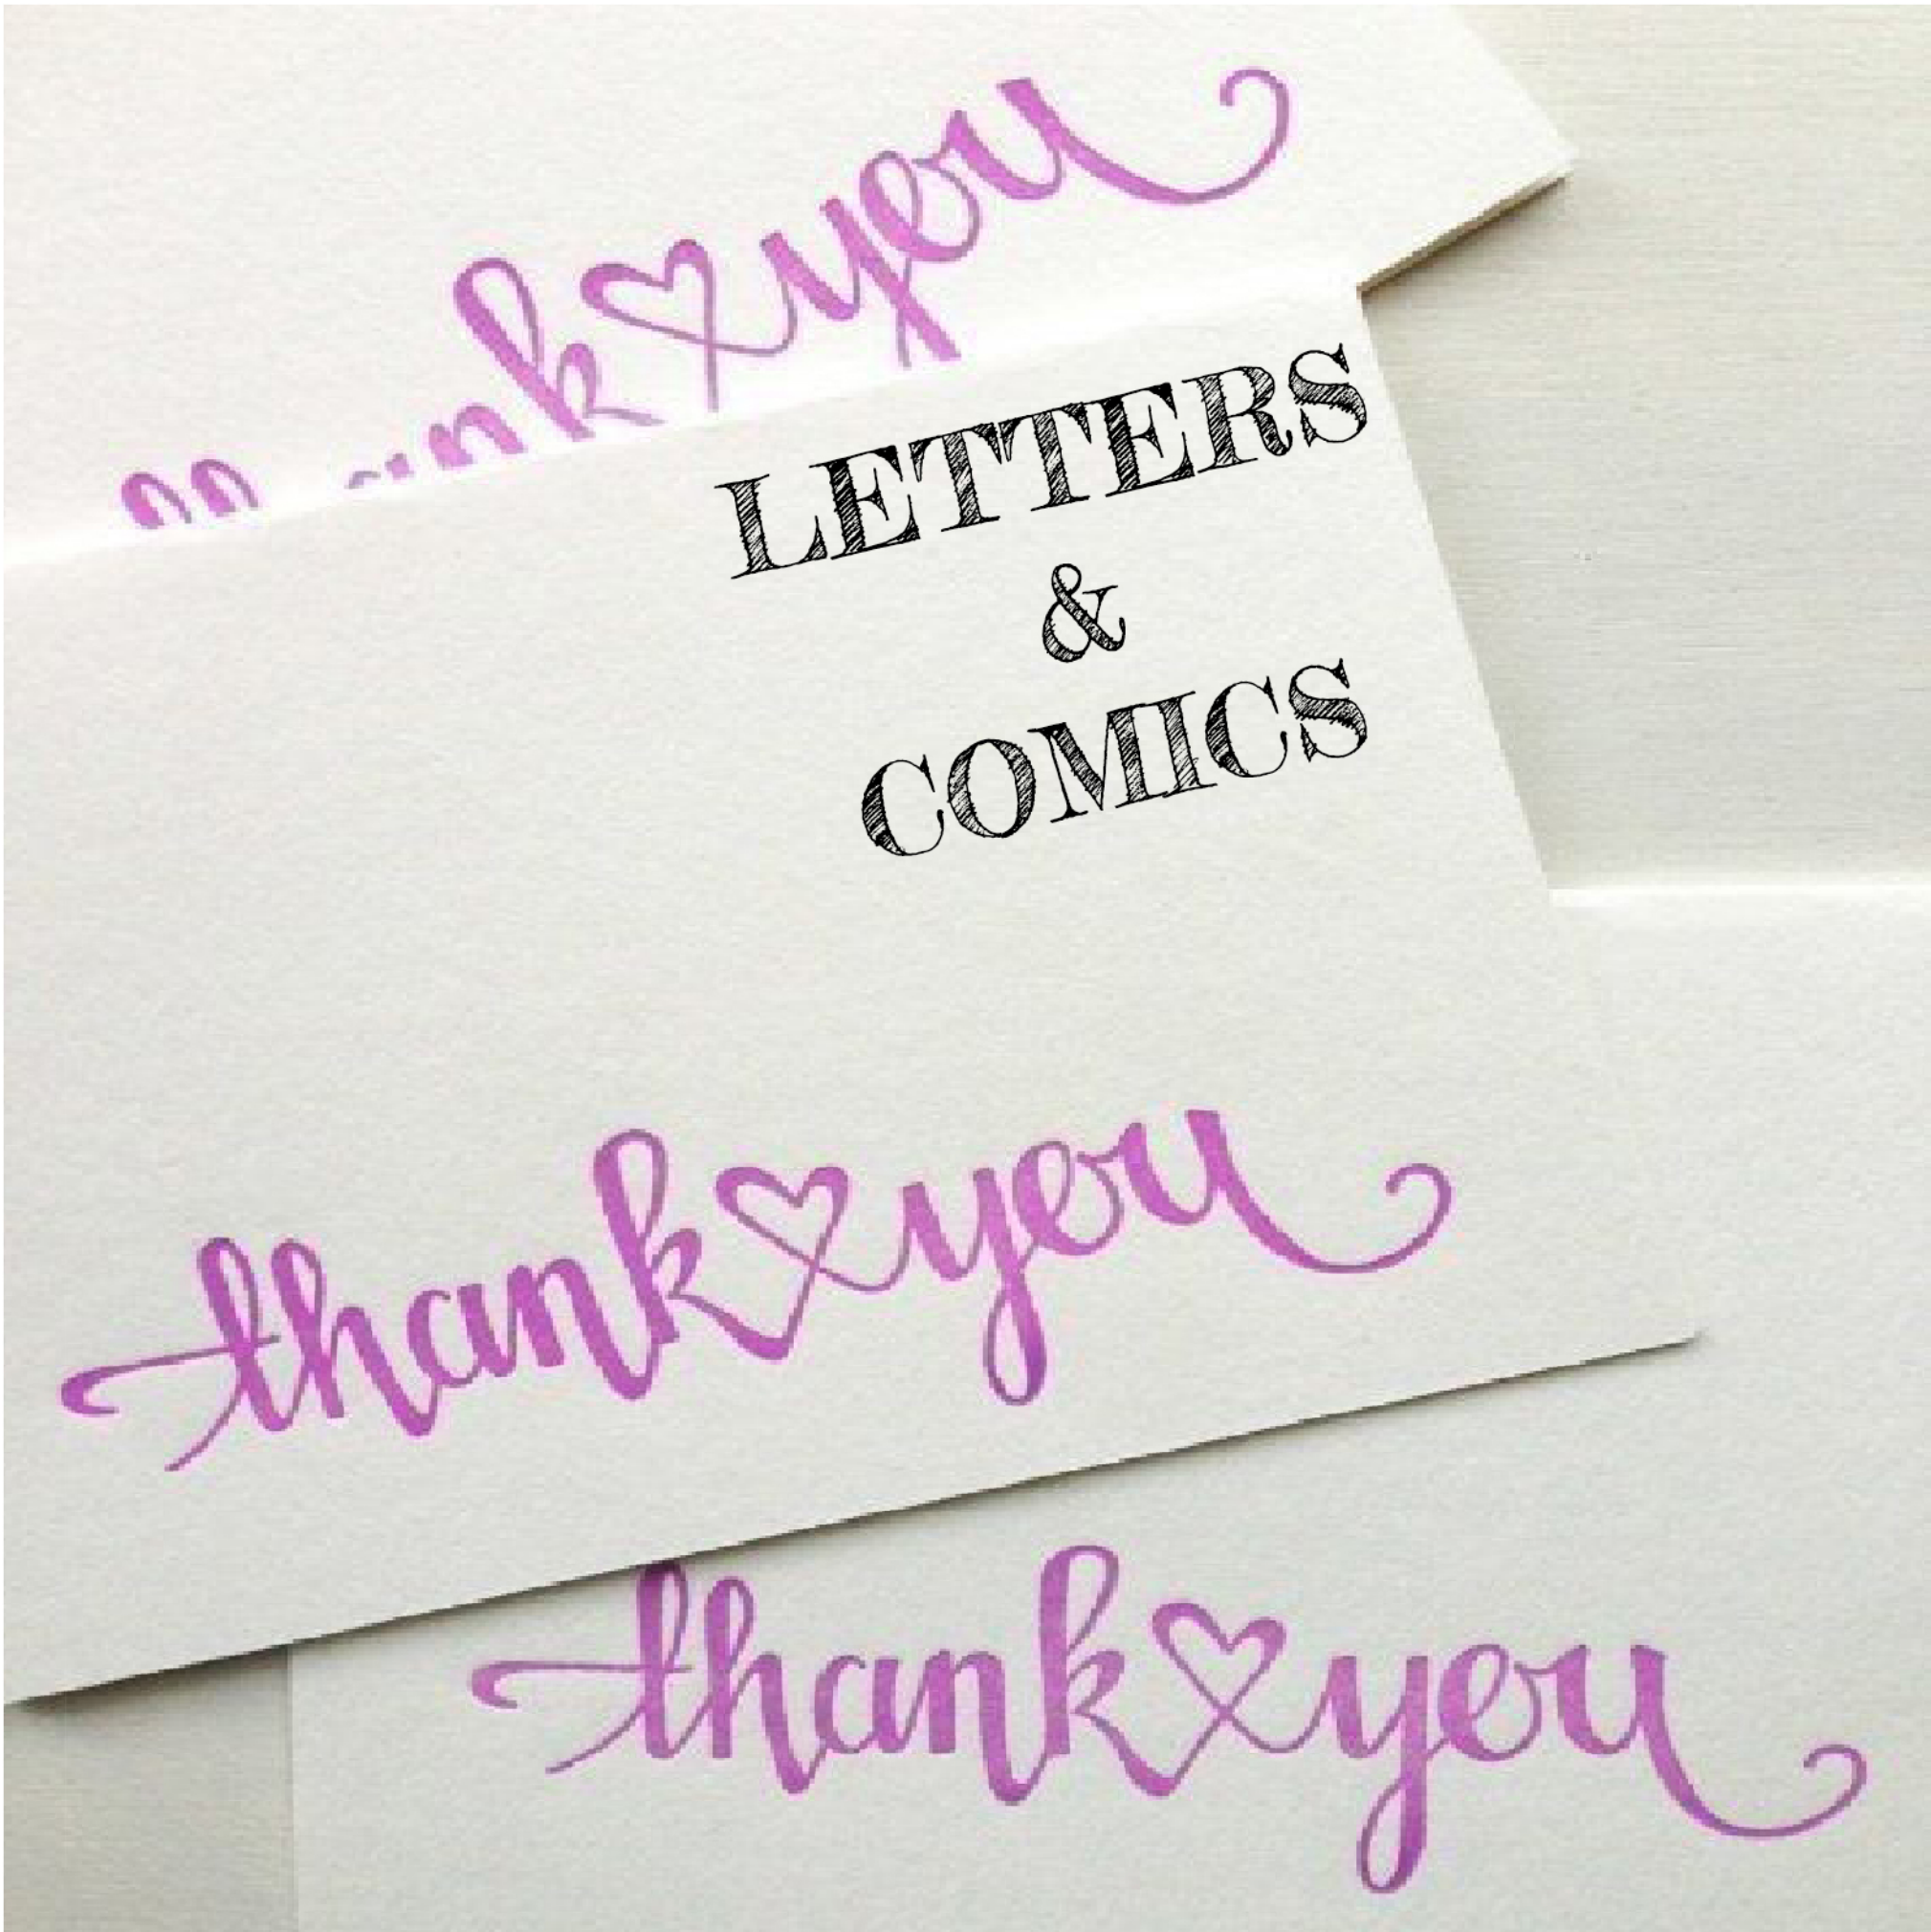 thank you
LETTERS
&
COMICS
thank you
thank you